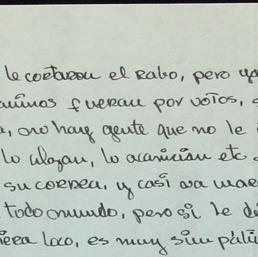 le cortaron el rabo, pero ya
fueran por votos,
no hay gente que no le
lo alagan, lo acarician etc
su correa, y casi va
todo mundo, pero si le
loco, es muy simpáti